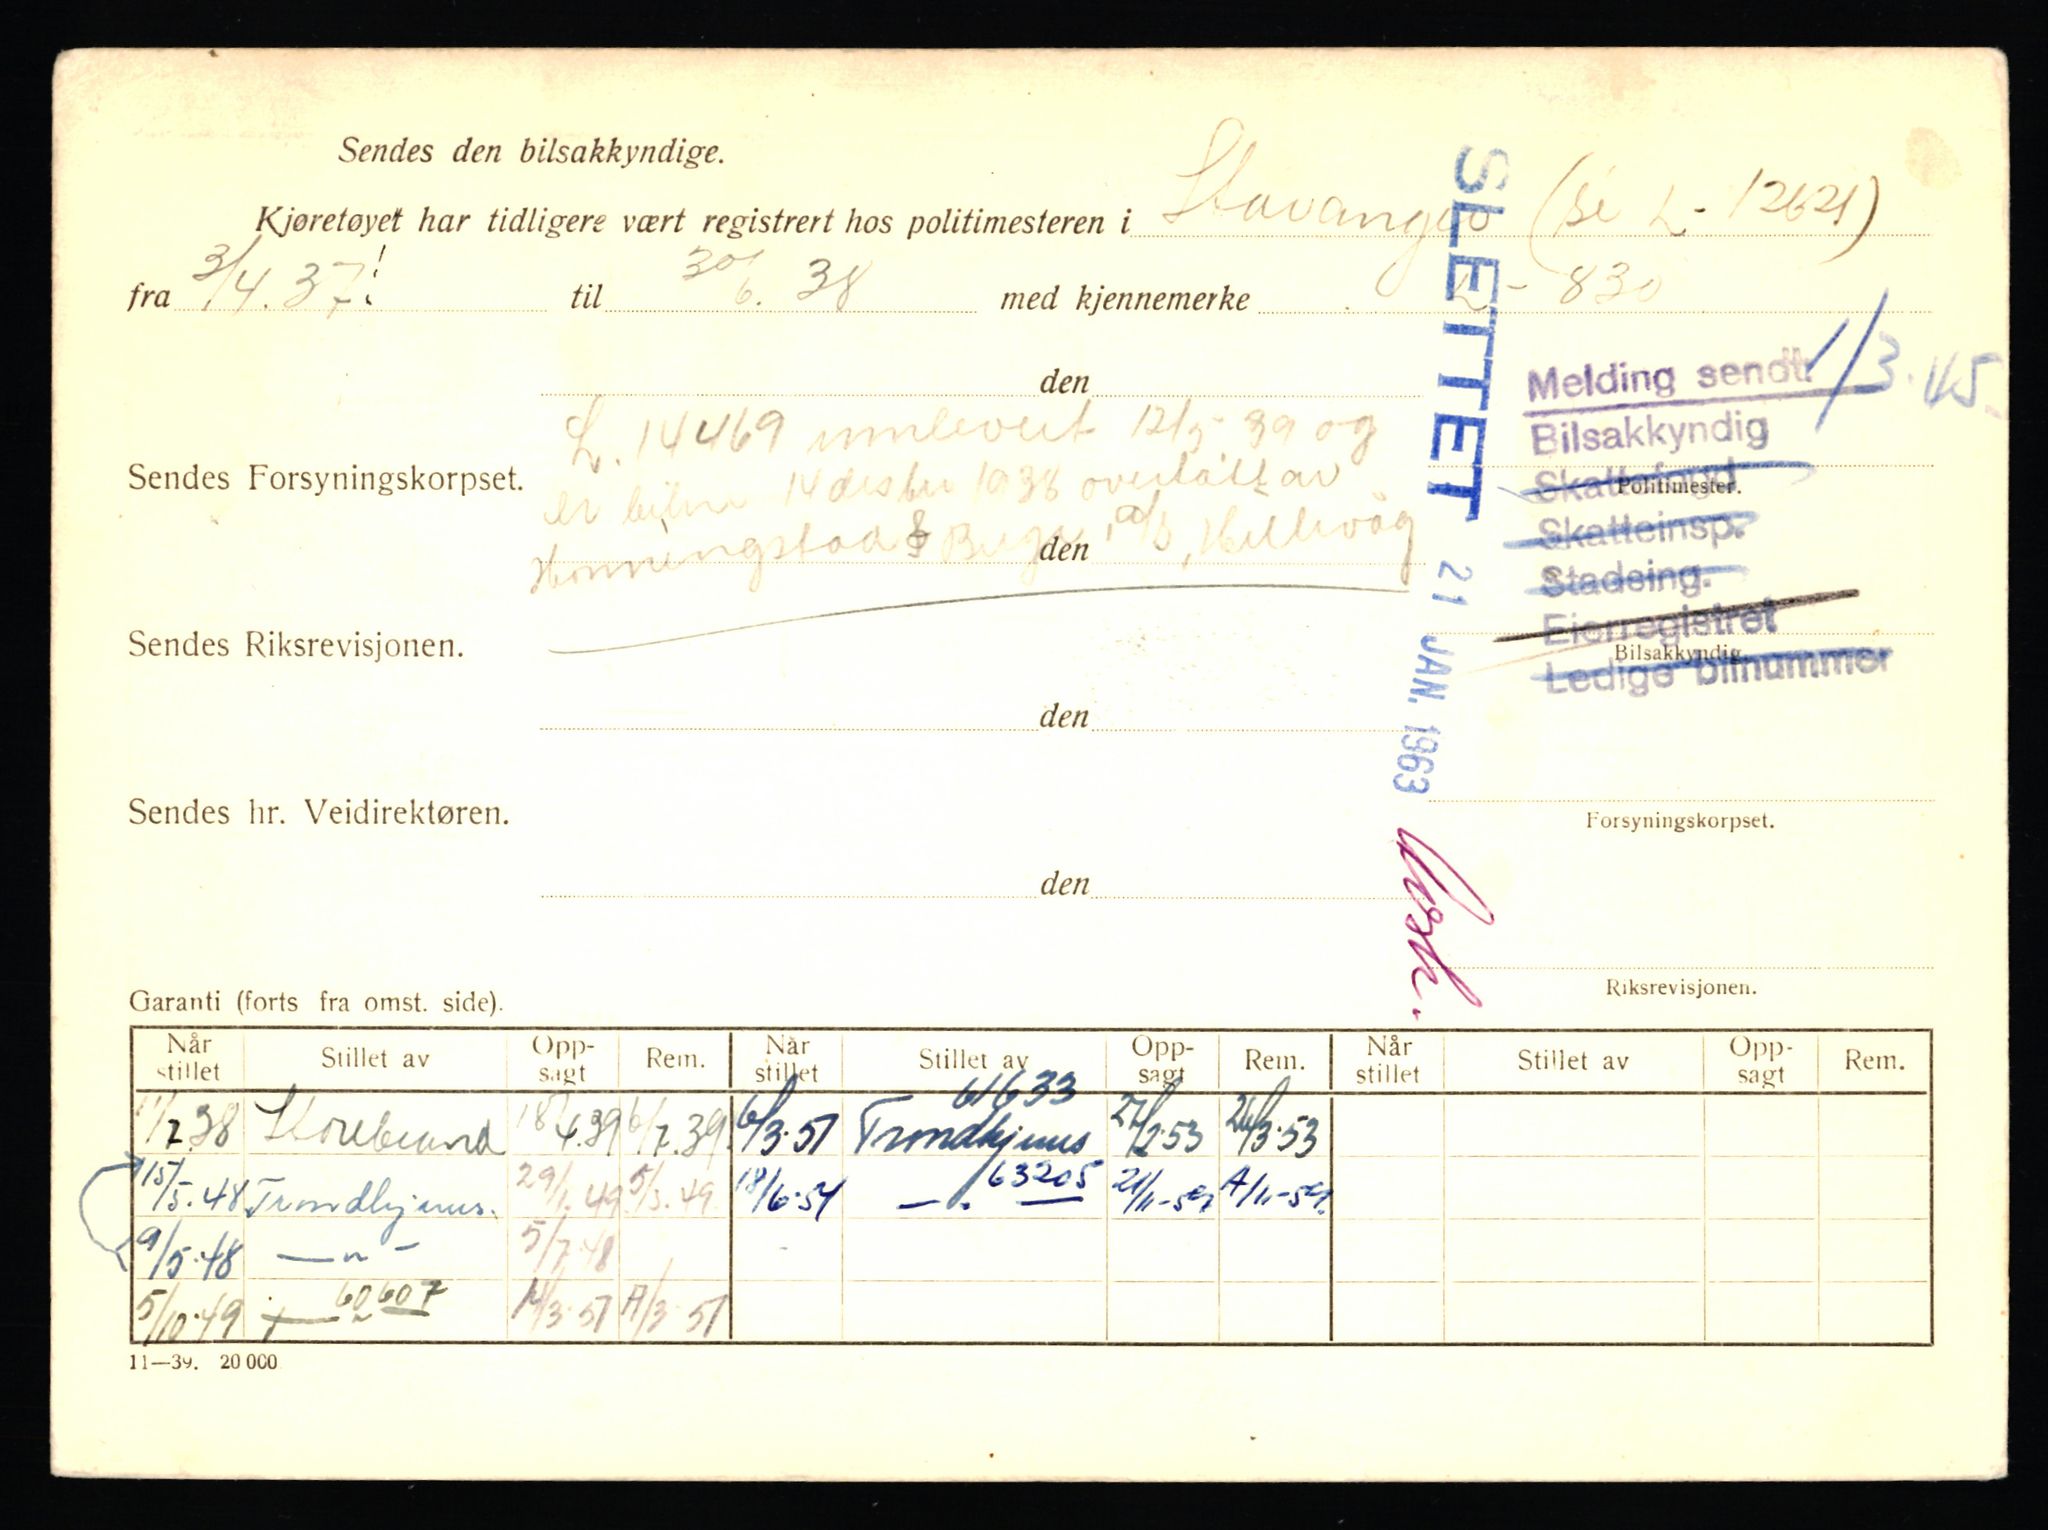 Sendes den bilsakkyndige.
Kjøretøyet har tidligere vært registrert hos politimesteren i Stavanger (se L- 12621)
fra 3/4. 37! til 30/6. 38 med kjennemerke L - 830
den
L. 14469 innlevert 12/5- 39 og
er bilen 14 desbr 1938 overtatt av
Honningstad & Berge, a/s, Hillevåg
Sendes Forsyningskorpset.
den
Sendes Riksrevisjonen.
den
Sendes hr. Veidirektøren.
den
SLETTET 21 JAN. 1963
Melding sendt: 1/3. 45.
Bilsakkyndig
Skattefogd
Politimester.
Skatteinsp.
Stadsing.
Eierregistret
Bilsakkyndig.
Ledige bilnummer
Forsyningskorpset.
Riksrevisjonen.
Garanti (forts fra omst. side).
Når stillet Stillet av Opp-sagt Rem. Når stillet Stillet av Opp-sagt Rem. Når stillet Stillet av Opp-sagt Rem.
11/7.38 Storebrand 18/4.39 6/7.39. 6/3.51 61633 Trondhjems 27/2.53 26/3.53
15/5.48 Trondhjems. 29/1.49 5/3.49. 18/6.54 — . 63205 21/11-54
9/5.48 — " - 5/7.48
5/10.49 — " 60607 /3.51 /3 51
11—39. 20 000